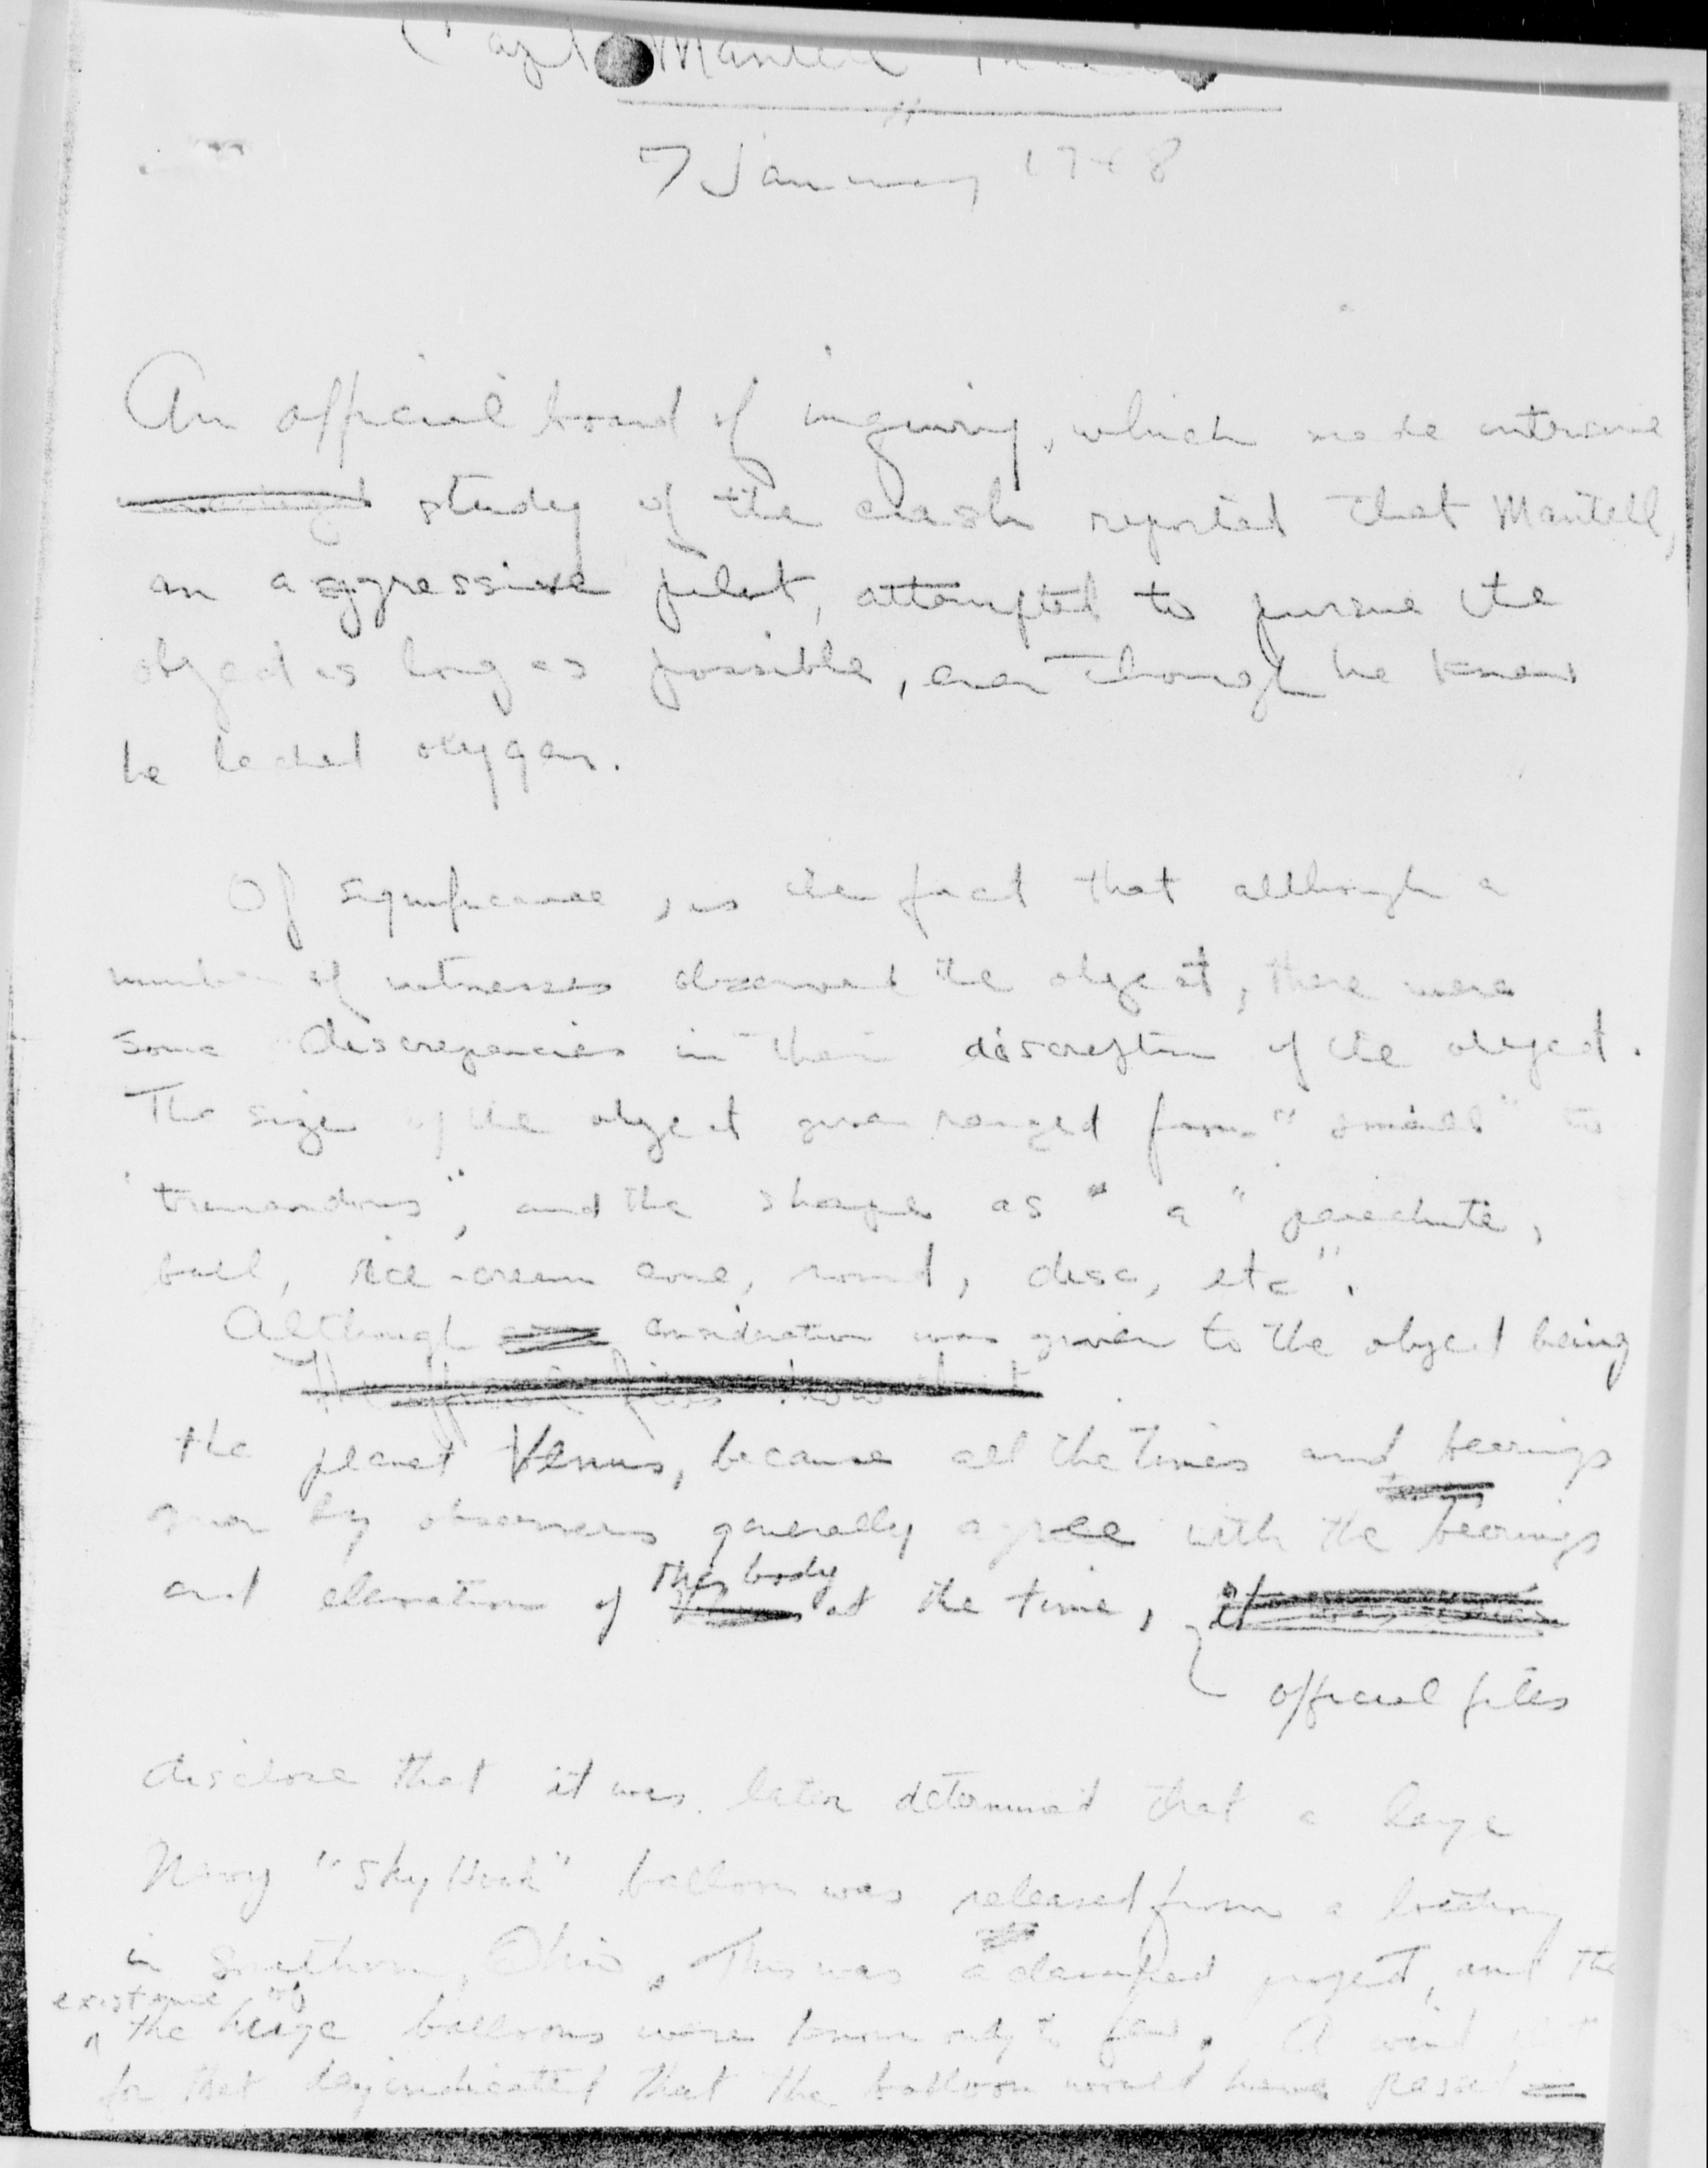 Capt Mantell
7 January 1948
An official board of inquiry, which made intensive
study of the crash reported that Mantell,
an aggressive pilot, attempted to pursue the
object as long as possible, even though he knew
he lacked oxygen.
Of significance, is the fact that although a
number of witnesses observed the object, there were
some discrepancies in their discreption of the object.
The size of the object given ranged from "small" to
"tremendous", and the shape as "a" parachute,
ball, ice-cream cone, round, disc, etc".
Although consideration was given to the object being
the planet Venus, because all the times and bearings
given by observers generally agree with the bearings
and elevation of this body at the time,
official files
disclose that it was later determined that a large
Navy "Sky Hook" balloon was released from a location
in Southern, Ohio. This was a classified project, and the
existance of
the huge balloons were known only to few. A wind
for that day indicated that the balloon would have passed